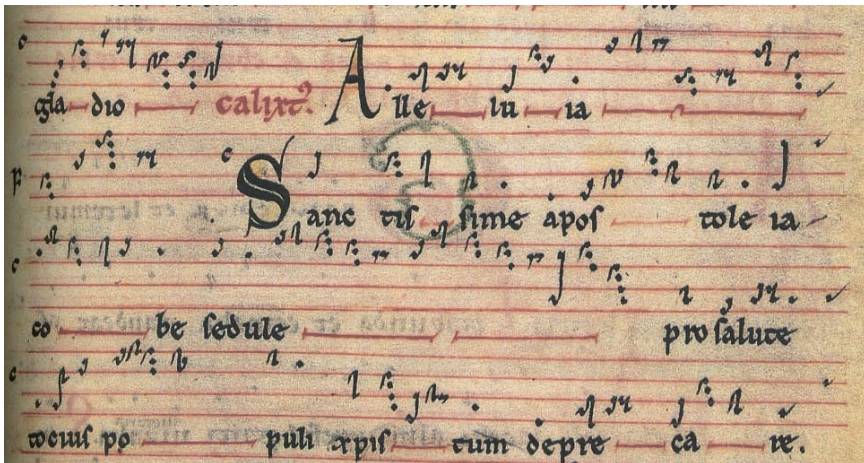 gla dio calixt᾽. Alle lu ia
Sanc tis sime apos tole ia
co be sedule pro salute
tocius po puli xpis tum depre ca re.